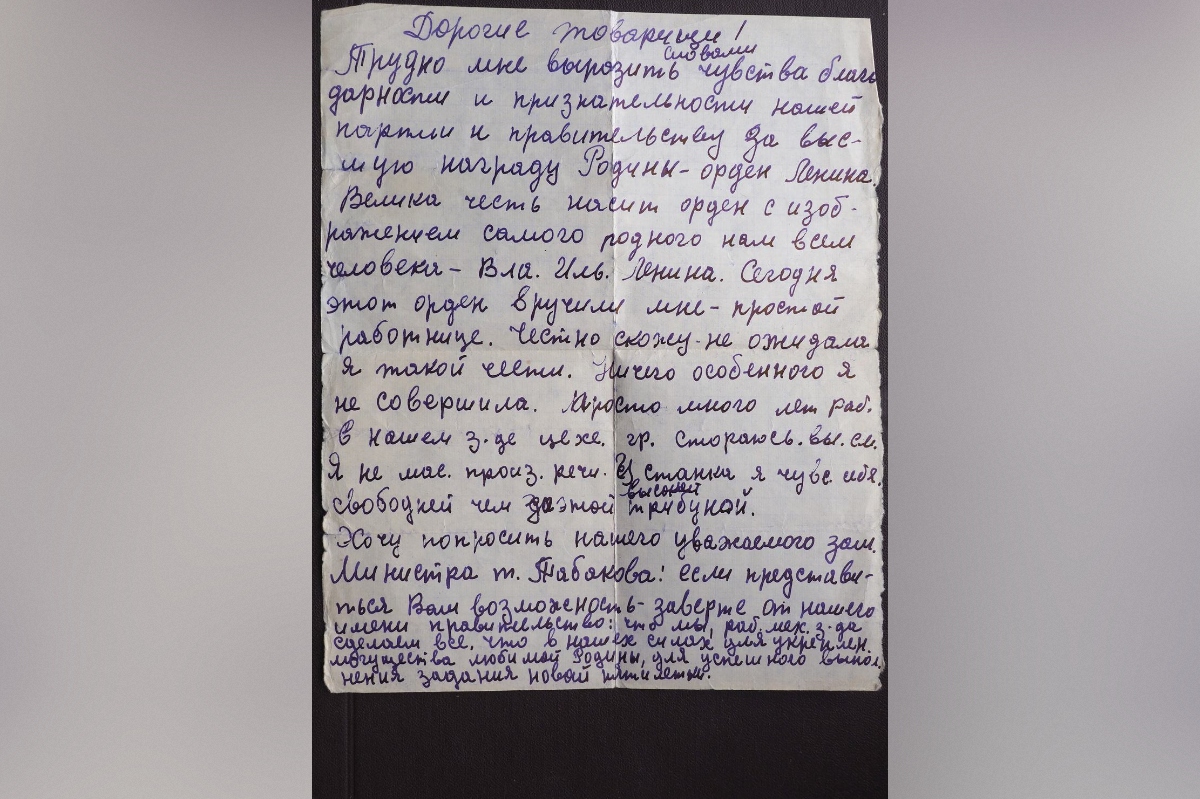 Дорогие товарищи!
Трудно мне выразить словами чувства благо
дарности и признательности нашей
партии и правительству за выс-
шую награду Родины - орден Ленина.
Велика честь насит орден с изоб-
ражением самого родного нам всем
человека - Вла. Иль. Ленина. Сегодня
этот орден вручили мне - простой
работнице. Честно скожу - не ожидала
я такой чести. Ничего особенного я
не совершила. Просто много лет раб.
в нашем з-де цехе. гр. стораюсь. вы. см.
Я не мас. произ. речи. У станка я чувс. себя.
свободней чем за этой высокой трибуной.
Хочу попросить нашего уважаемого зам.
Министра т. Табакова: если представи-
ться Вам возможность - заверте от нашего
имени правительство: что мы, раб. мех. з-да
сделаем все, что в нашех силах для укреплен.
могущества любимой Родины, для успешного выпол.
нения задания новой пятилетки.